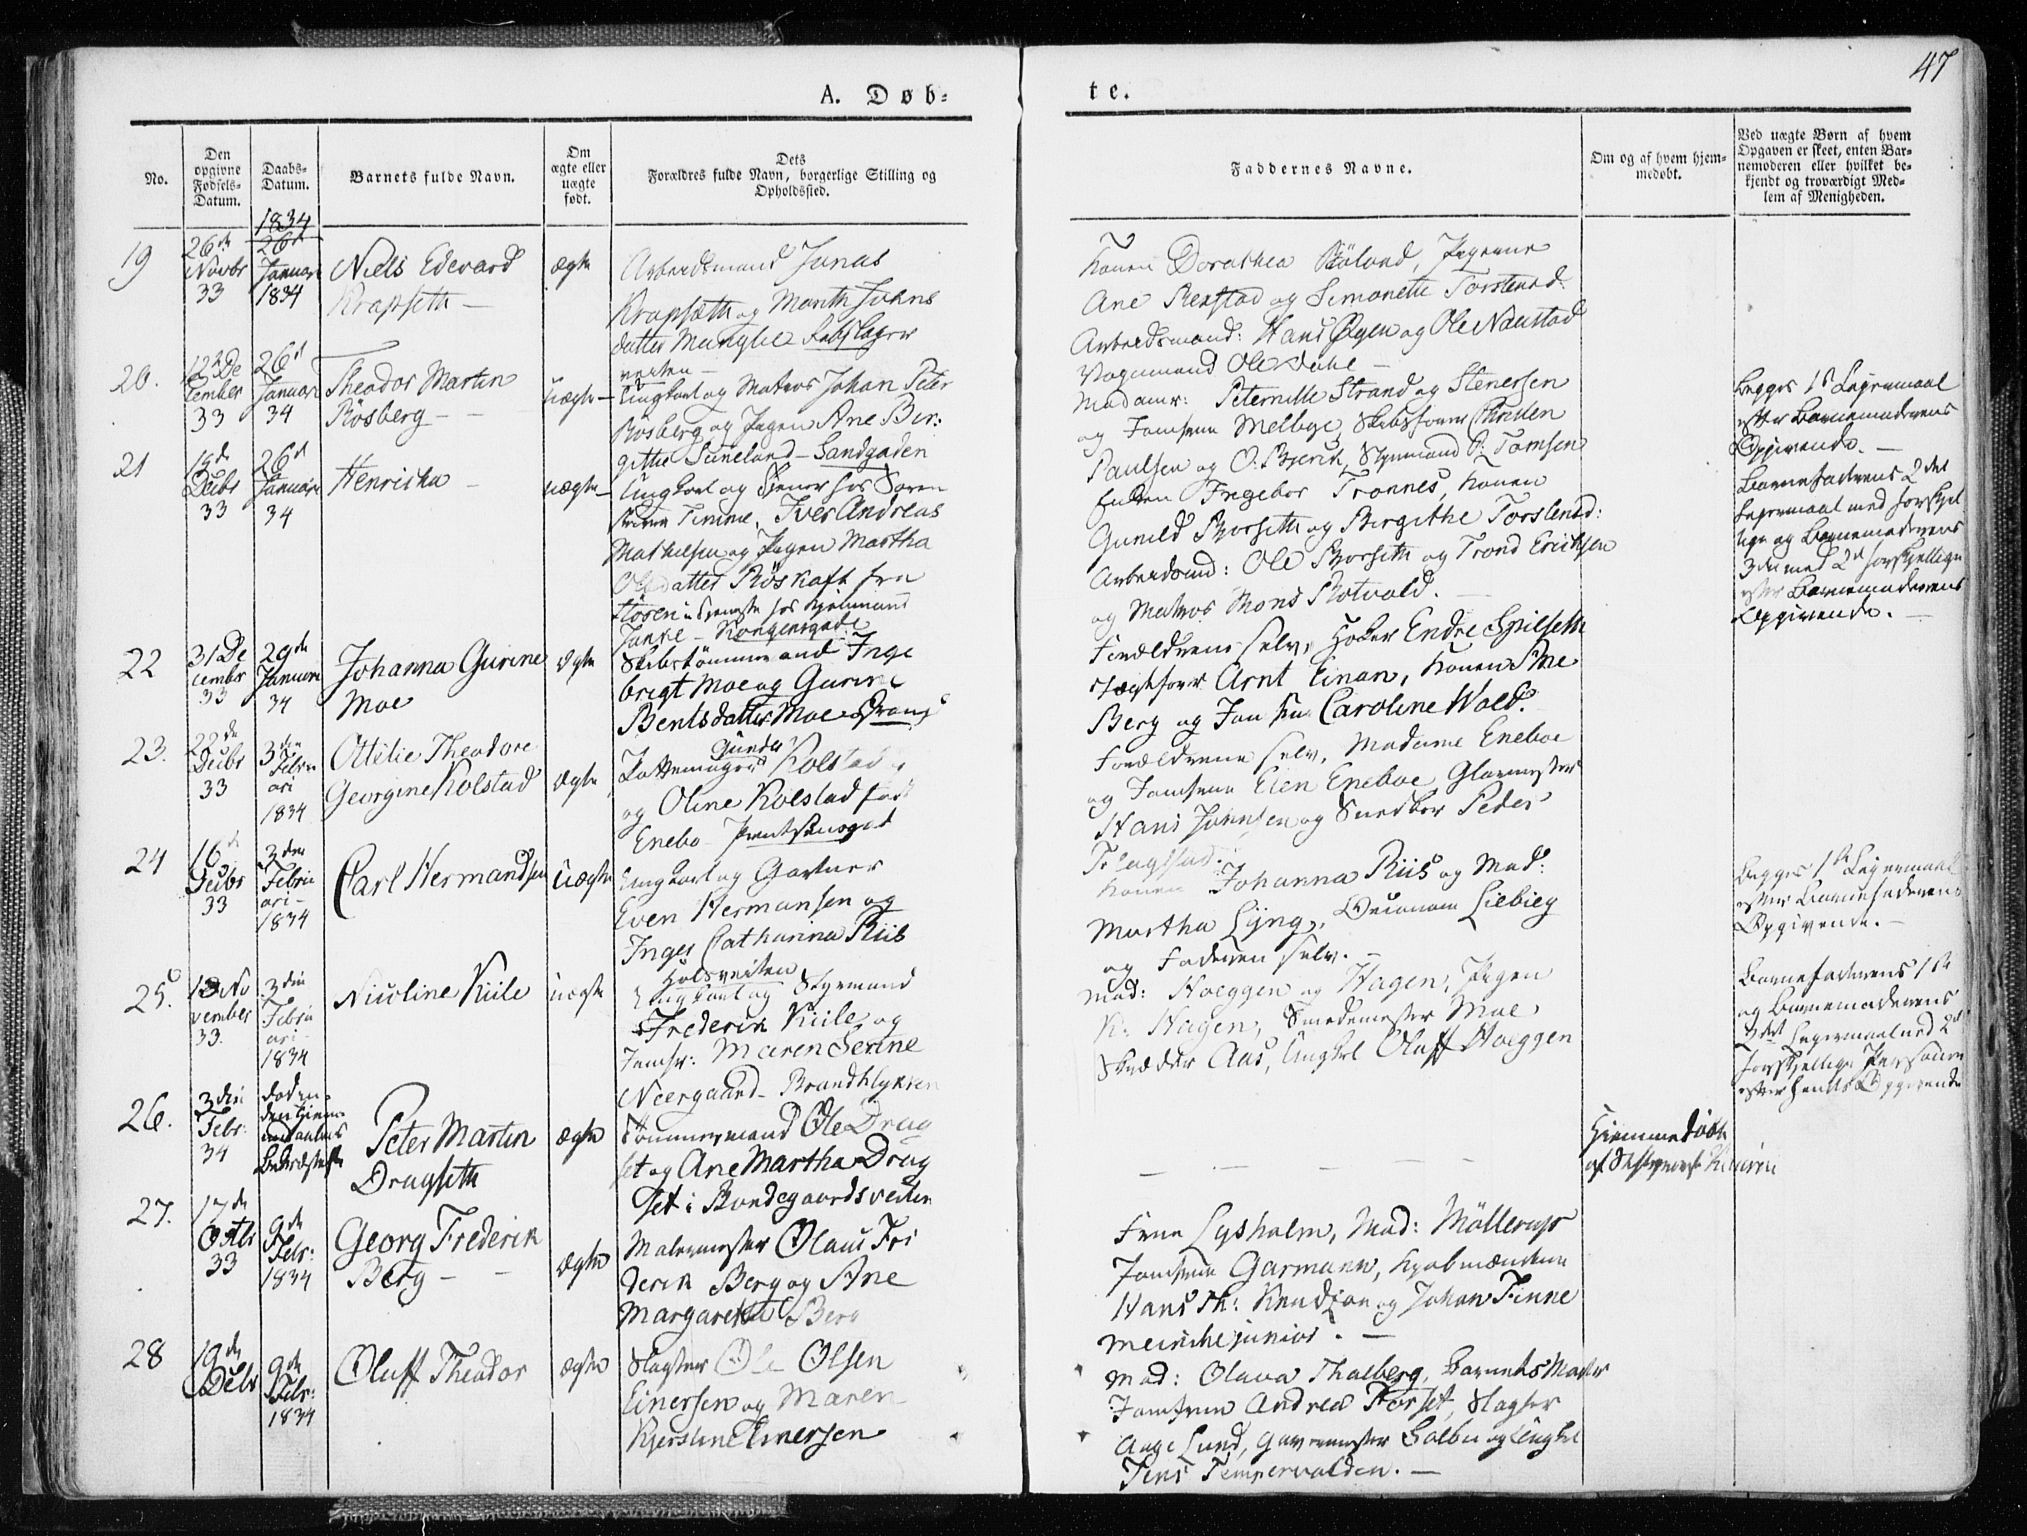 47
A. Døb-
te.
No.
Den opgivne Fødsels-Datum.
Daabs-Datum.
Barnets fulde Navn.
Om ægte eller uægte født.
Dets Forældres fulde Navn, borgerlige Stilling og Opholdssted.
Faddernes Navne.
Om og af hvem hjemmedøbt.
Ved uægte Børn af hvem
Opgaven er skeet, enten Bar-
nemoderen eller hvilket be-
kjendt og troværdigt Med-
lem af Menigheden.
1834
19
26de Novbr 33
26d Januar 1834
Niels Edevard
Krapseth
ægte
Arbeidsmand Jonas
Krapseth og Marith Johns
datter
Konen Dorothea
Ane Rexstad og Simonette Torstensd.
Arbeidsmænd: Hans Øyen og Ole Naustad
Vognmand Ole Dahl
20.
December 33
26d Januari 34
Theodor Martin
Rösberg
uægte
Ungkarl og Matros Johan Peter
Rosberg og Pigen Ane Bir-
gitte Suneland - Sandgaden
Madamr: Peternille Strand og Stenersen
og Jomfrue Melbye, Skibsfører Christen
Paulsen og O. Bjerck, Styrmand P. Tomsen
Begges 1st Leiermaal
efter Barnemoderens
Opgivende.
21
Decbr 33
26d Januari 34
Henricka
uægte
Ungkarl og Tjener hos Soren
Timme, Iver Andreas
Mathisen og Pigen Martha
Olsdatter Röskaft fra
Kongensgade
Enken Ingebor Tronnes, Konen
Gunild Borseth og Birgithe Torstensd:
Arbeidsmd: Ole Borseth og Trond Eriksen
og Matros Mons Rotvold.
Barnefaderens 2det
Leiermaal med forskjel
lige og Barnemoderens
3die med 2d forskjellige
efter Barnemoderens
Opgivende.
22
31 December 33
29de Januari 34
Johanna Gurine
Moe
ægte
Skibstömmermand Inge
brigt Moe og Gurine
Bentsdatter Moe
Forældrene selv, Endre Spilseth
Arnt Einan, Konen Ane
Berg og Caroline Wold.
23.
22de Decbr 33
3den Februari 1834
Ottilie Theodore
Georgine Kolstad
ægte
Pottemager Gunder Kolstad
og Oline Kolstad född
Enebo
Forældrene selv, Madame Eneboe
og Jomfrue Elen Eneboe Glarmester
Hans Johnsen og Snedker Peder
24
16d Decbr 33
3den Februari 1834
Carl Hermandsen
uægte
Ungkarl og Gartner
Even Hermansen og
Inger Catharina Riis
Holsveiten
Konen Johanna Riis og Mad:
Martha Lyng, Oeconom Liebieg
og Faderen selv.
Begges 1st Leiermaal
efter Barnefaderens
Opgivende.
25.
13 November 33.
3die Februari 1834
Nicoline Kiile
uægte
Ungkarl og Styrmand
Frederik Kiile og
Jomfr: Maren Serine
Neergaard
Mad: Hoeggen og Hagen, Pigen
K. Hagen, Smedemester Moe,
Skrædder Aas, Ungkl Oluff Hoeggen
Barnefaderens 1st
og Barnemoderens
2det Leiermaal med 2d
forskjellige Personer
efter hendes Opgivende
26.
3die Febr: 34
Peter Martin
Dragseth
ægte
Tömmermand Ole Drag
set og Ane Martha Drag
set i Bondegaardsveiten
Hiemmedöbt
27.
17de Octbr 33
9de Febr: 1834
Georg Frederik
Berg
ægte
Malermester Olaus Fri
derik Berg og Ane
Margaretha Berg
Frue Lysholm, Mad: Möllerup
Jomfrue Garmann, Kjøbmændene
Hans Th: Knudzon og Johan Finne
Meincke junior.
28
19de Decbr
9de Febr: 1834
Oluff Theodor
ægte
Slagter Ole Olsen
Einersen og Maren
Kjerstine Einersen
Mad: Olava Thalberg, Barnets Moder
Jomfrue Andrea Forset, Slagter
Aage Lund, Garvermester Solbu og Ungkl
Jens Tempervolden.